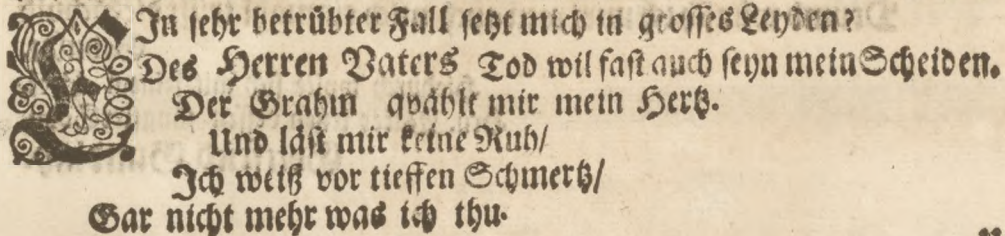 EIn sehr betrübter Fall setzt mich in grosses Leyden?
Des Herren Vaters Tod wil fast auch seyn mein Scheiden.
Der Grahm qvählt mir mein Hertz.
Und läst mir keine Ruh/
Ich weiß vor tieffen Schmertz/
Gar nicht mehr was ich thu.